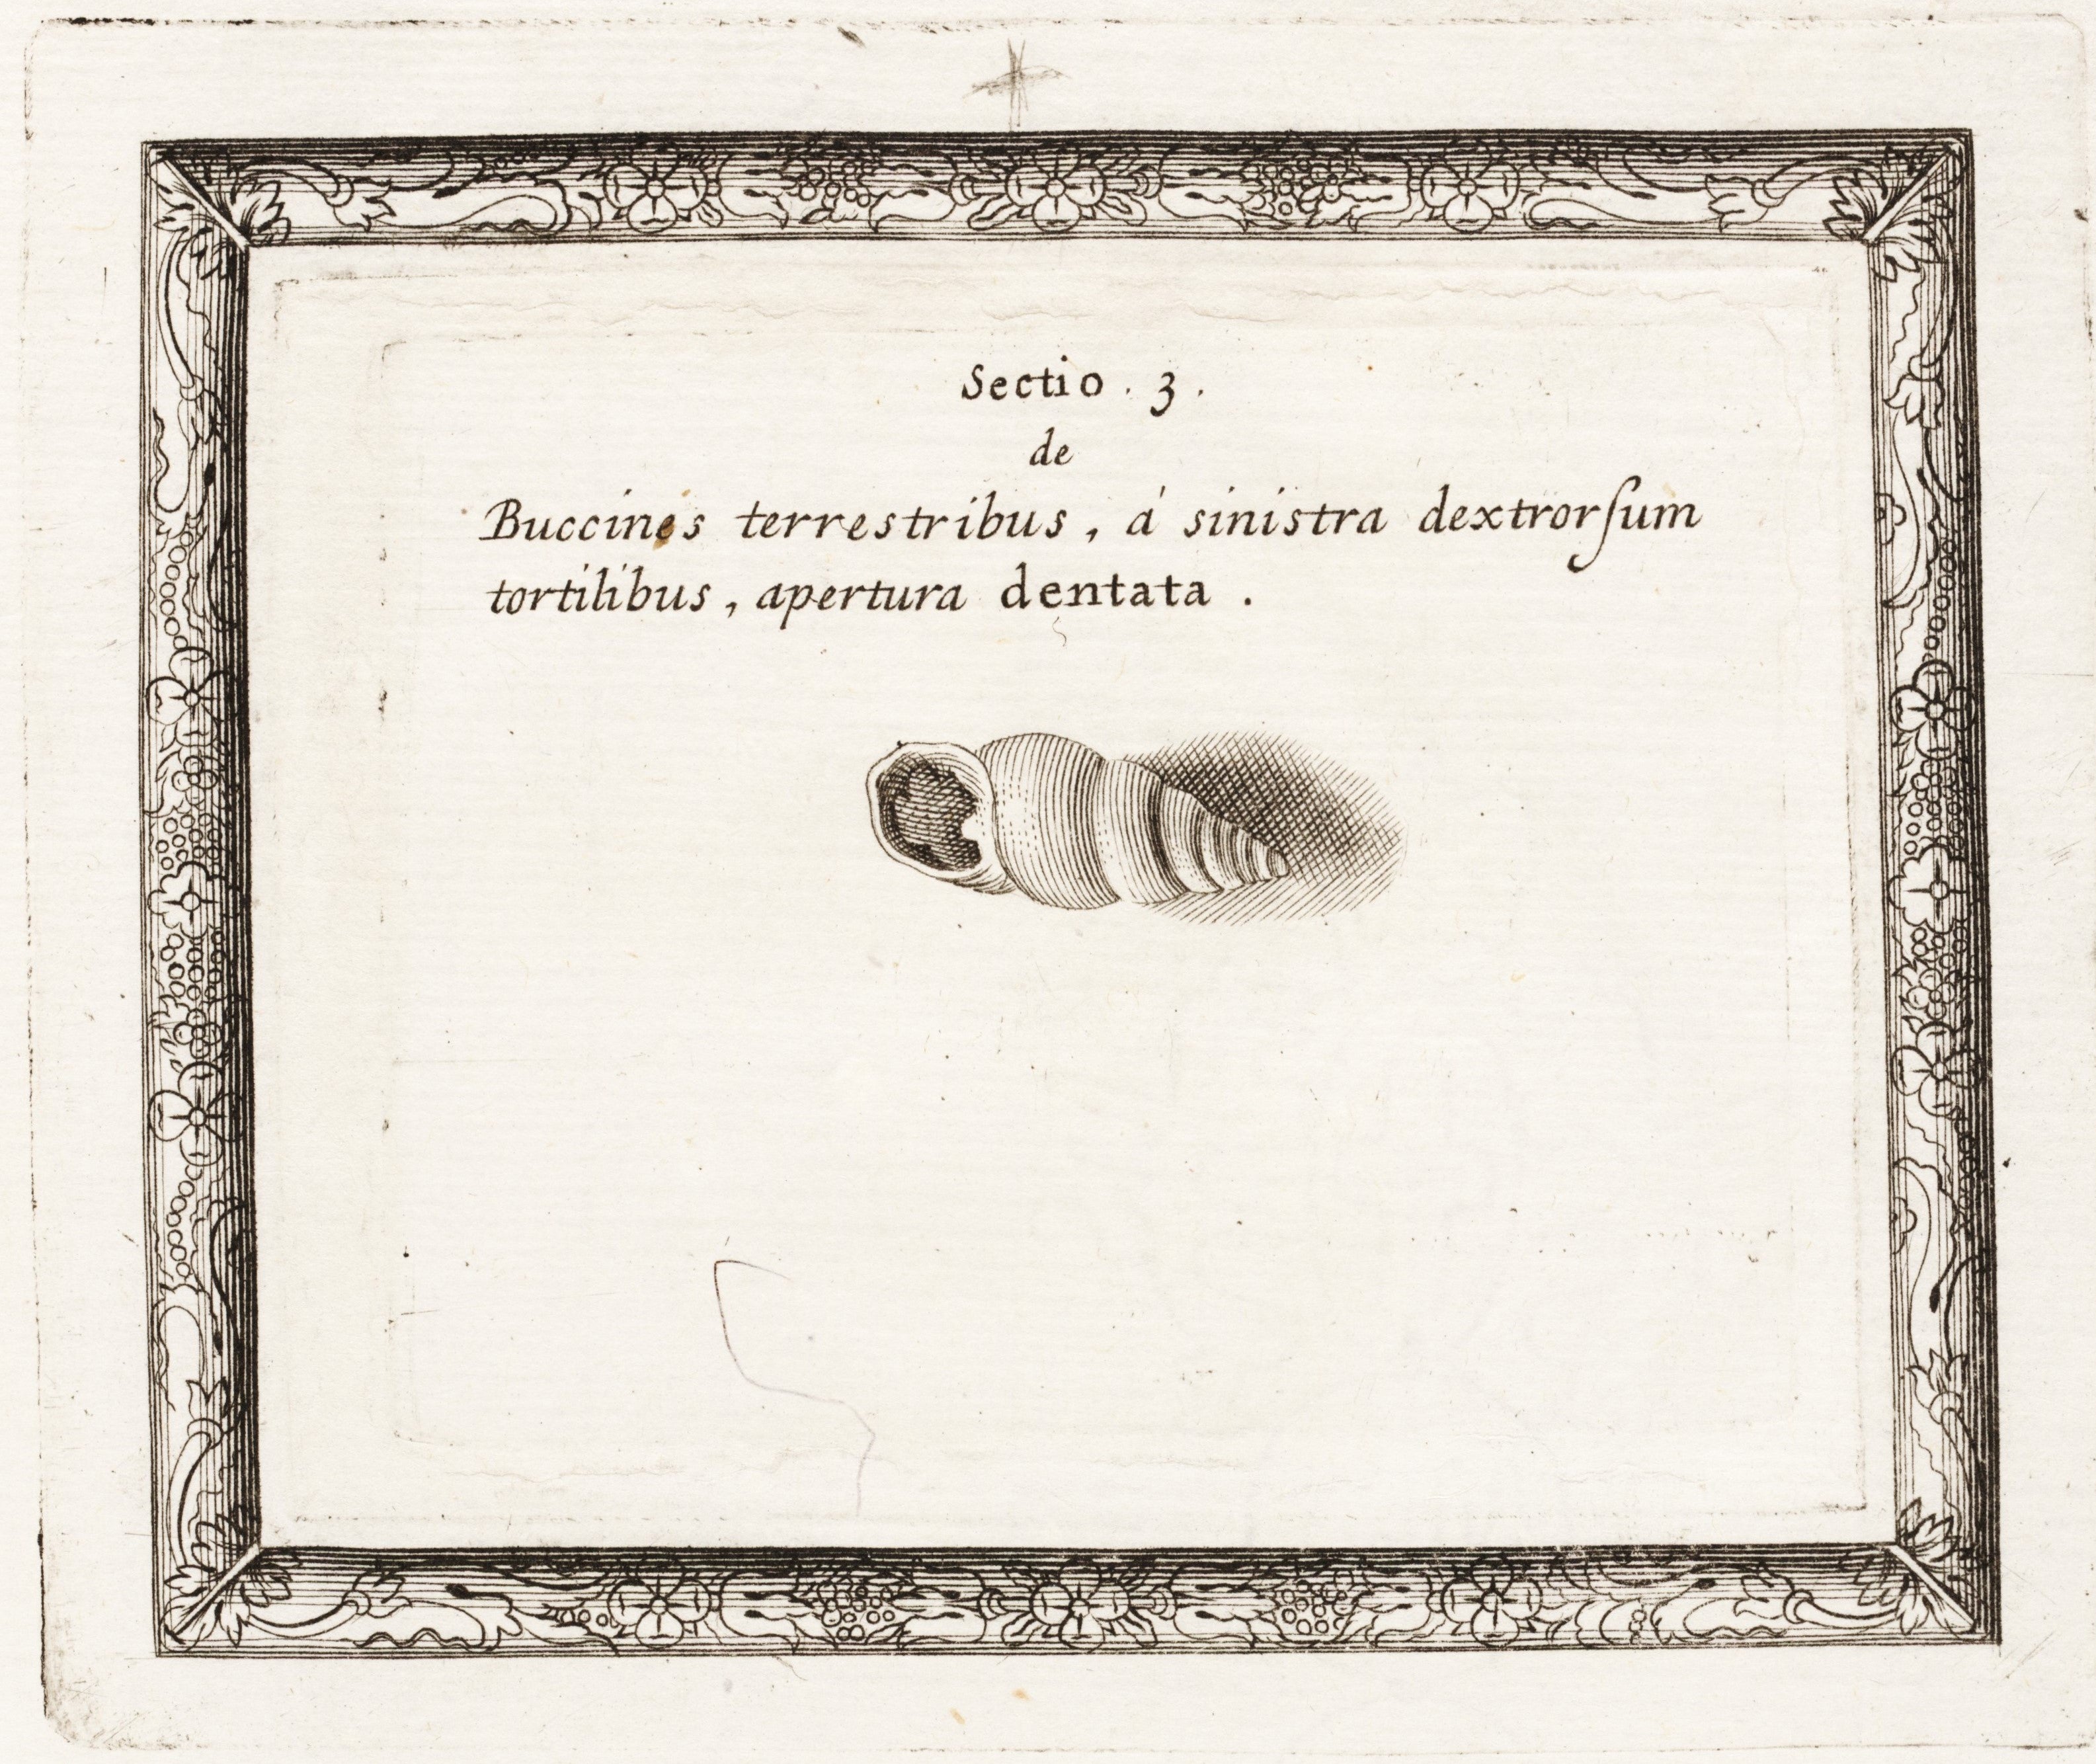 Sectio . 3 .
de
Buccines terrestribus , á sinistra dextrorſum
tortilibus , apertura dentata .